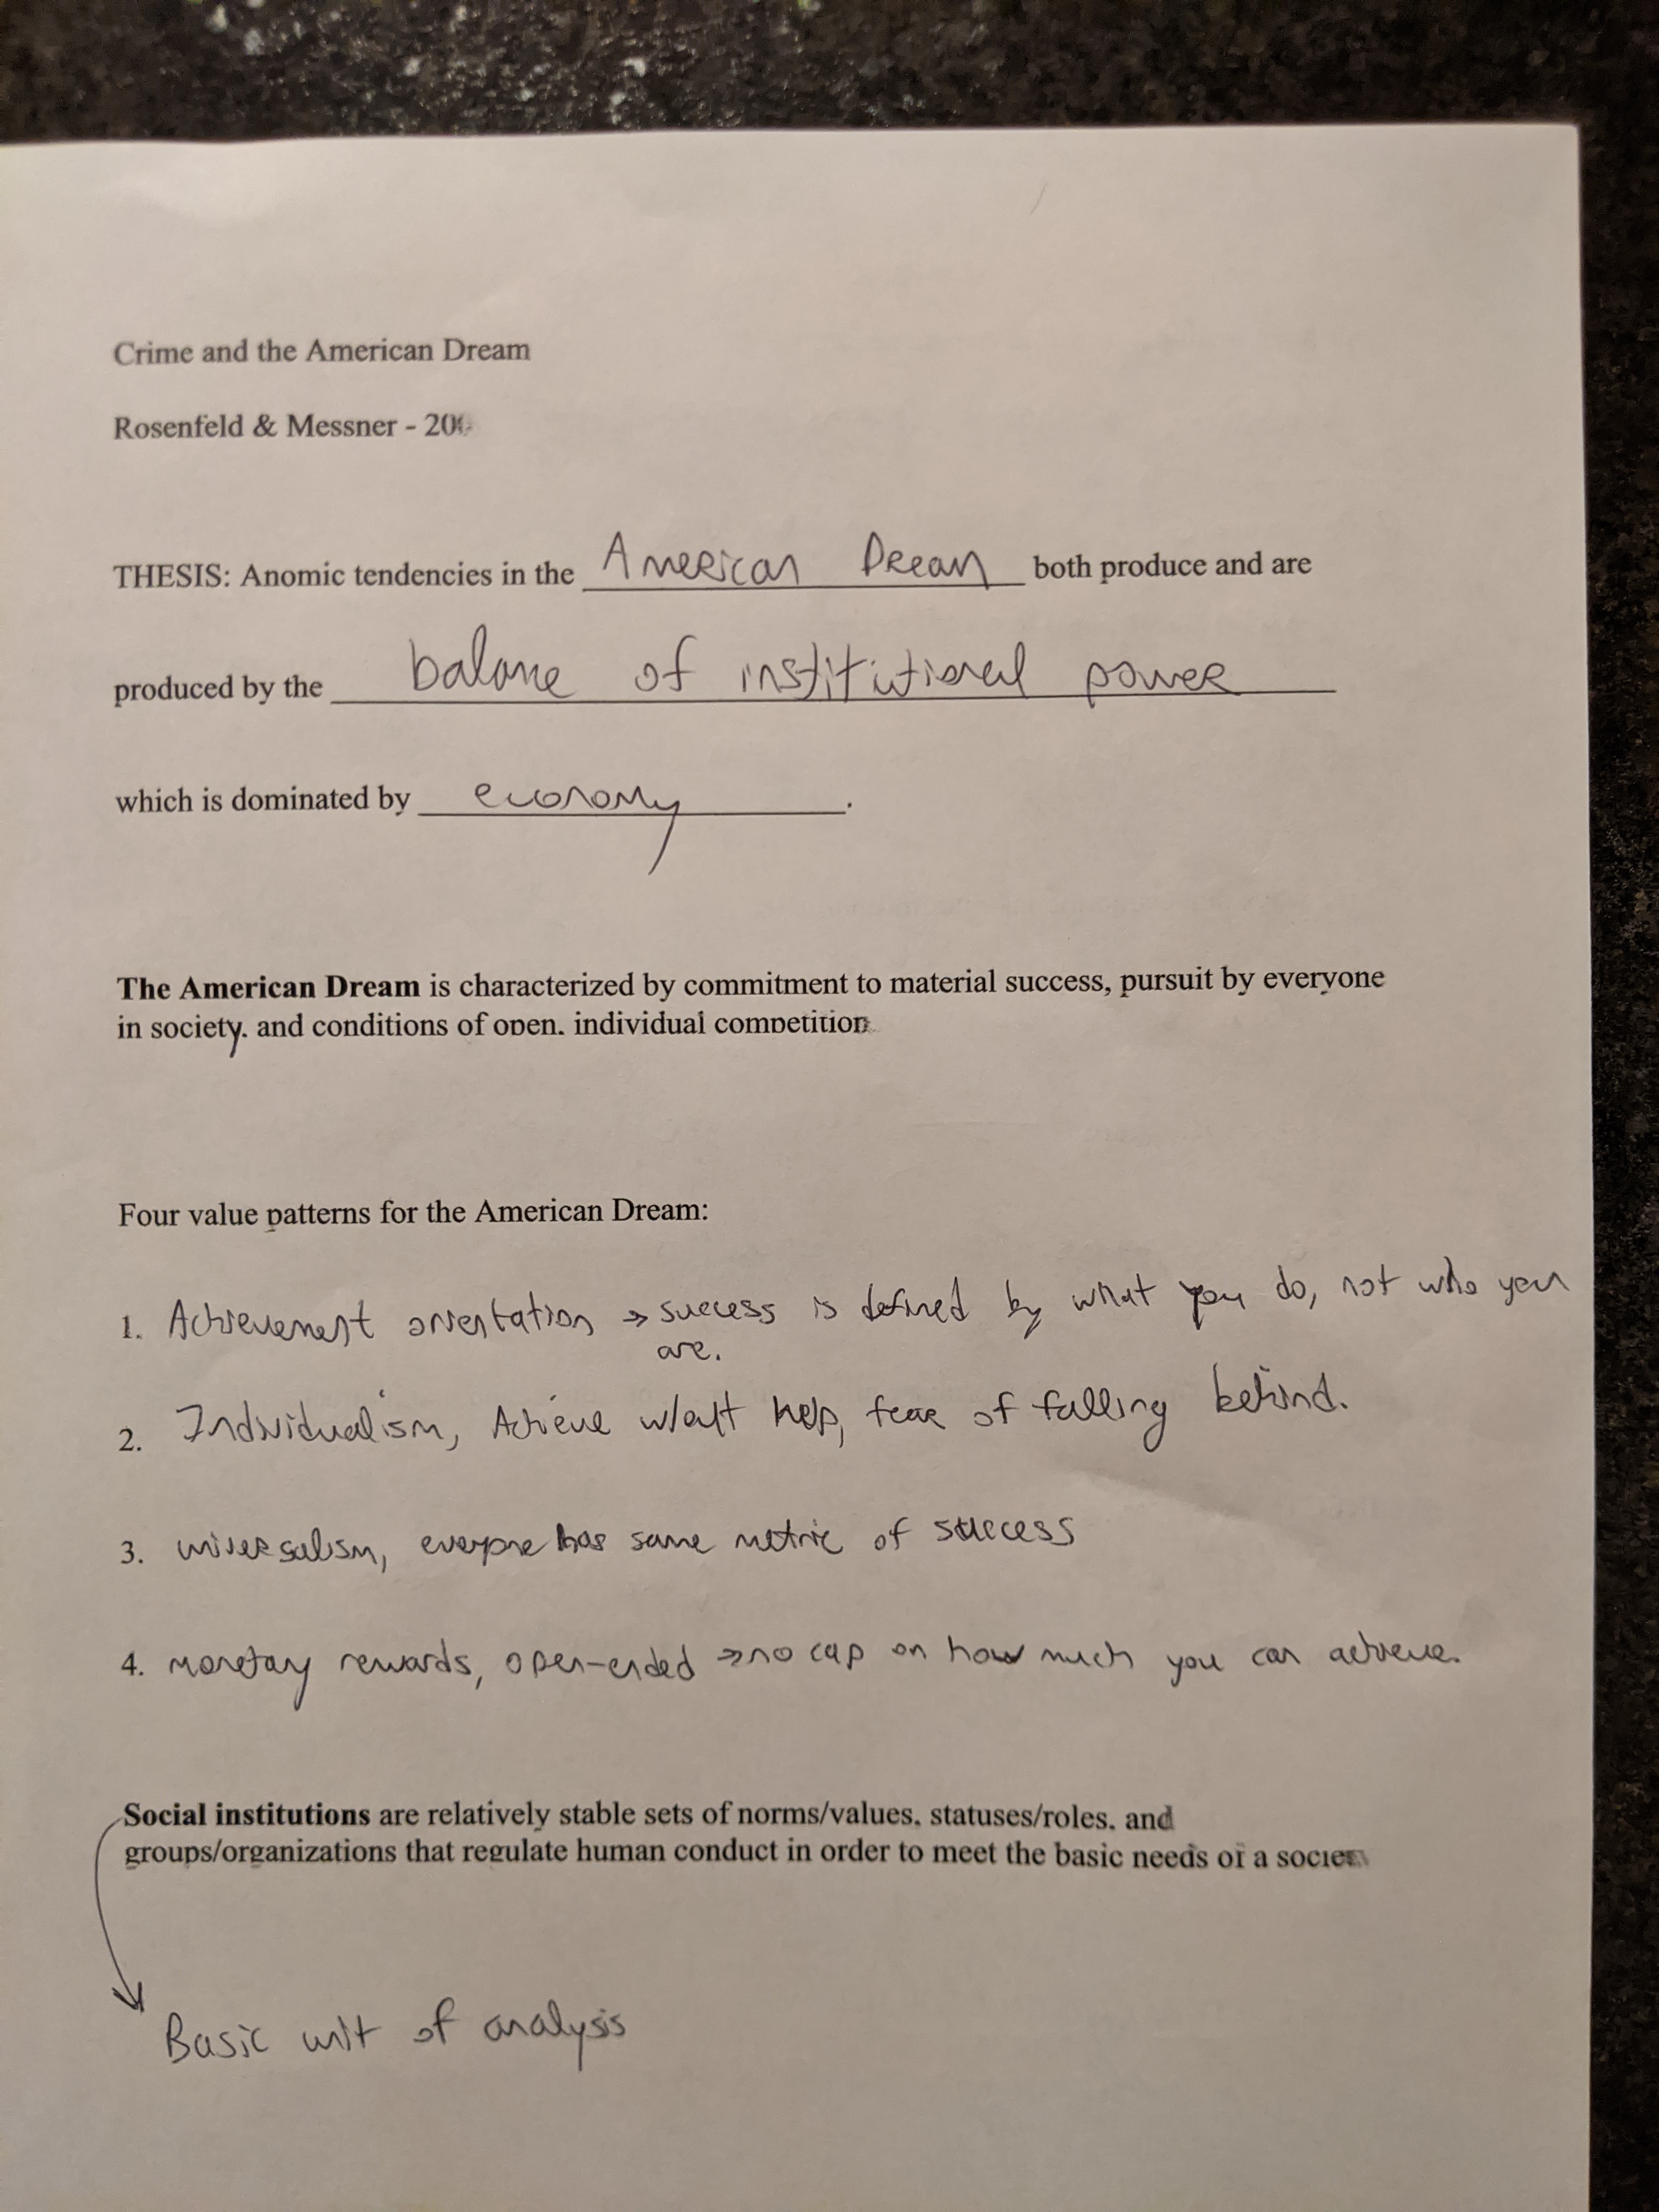 Crime and the American Dream
Rosenfeld & Messner -
THESIS: Anomic tendencies in the American Dream both produce and are
produced by the balance of institutional power
which is dominated by economy.
The American Dream is characterized by commitment to material success, pursuit by everyone
in society, and conditions of open, individual competition
Four value patterns for the American Dream:
1. Achievement orientation → success is defined by what you do, not who you
are.
2. Individualism, Achieve w/out help, fear of falling behind.
3. universalism, everyone has same metric of success
4. monetary rewards, open-ended → no cap on how much you can achieve.
Social institutions are relatively stable sets of norms/values, statuses/roles, and
groups/organizations that regulate human conduct in order to meet the basic needs of a
Basic unit of analysis